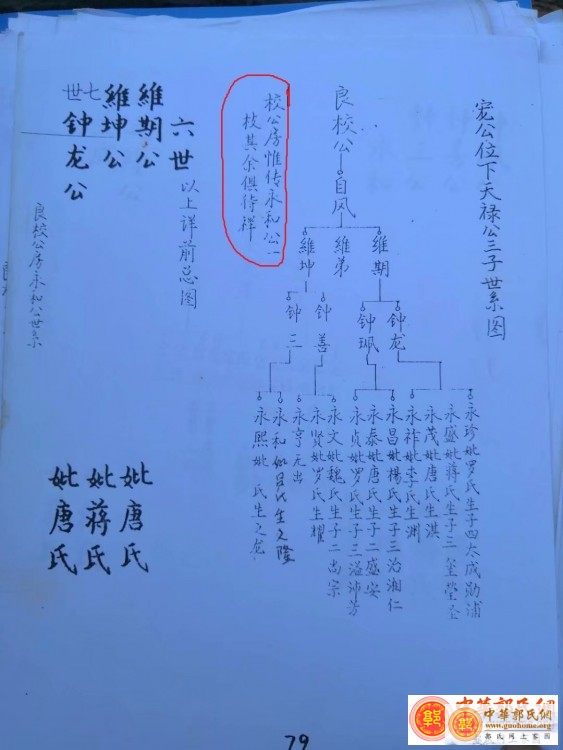 宽公位下天禄公三子世系图
良校公
自风
維期
維弟
維坤
钟龙
钟珮
钟善
钟三
永珍妣罗氏生子四太成勋浦
永盛妣蒋氏生子三玺莹全
永茂妣唐氏生淇
永祚妣李氏生渊
永昌妣楊氏生子三治湘仁
永泰妣唐氏生子二盛安
永贞妣罗氏生子三溢沛芳
永文妣魏氏生子二尚宗
永贤妣罗氏生耀
永亨无出
永和妣吕氏生之隆
永熙妣 氏生之
校公房惟传永和公一
枝其余俱待祥
六世
以上详前总图
維期公
妣唐氏
維坤公
妣蒋氏
七世
钟龙公
妣唐氏
良校公房永和公世系
79
中華郭氏網
中華郭氏網
www.guohome.org
郭氏网上家园